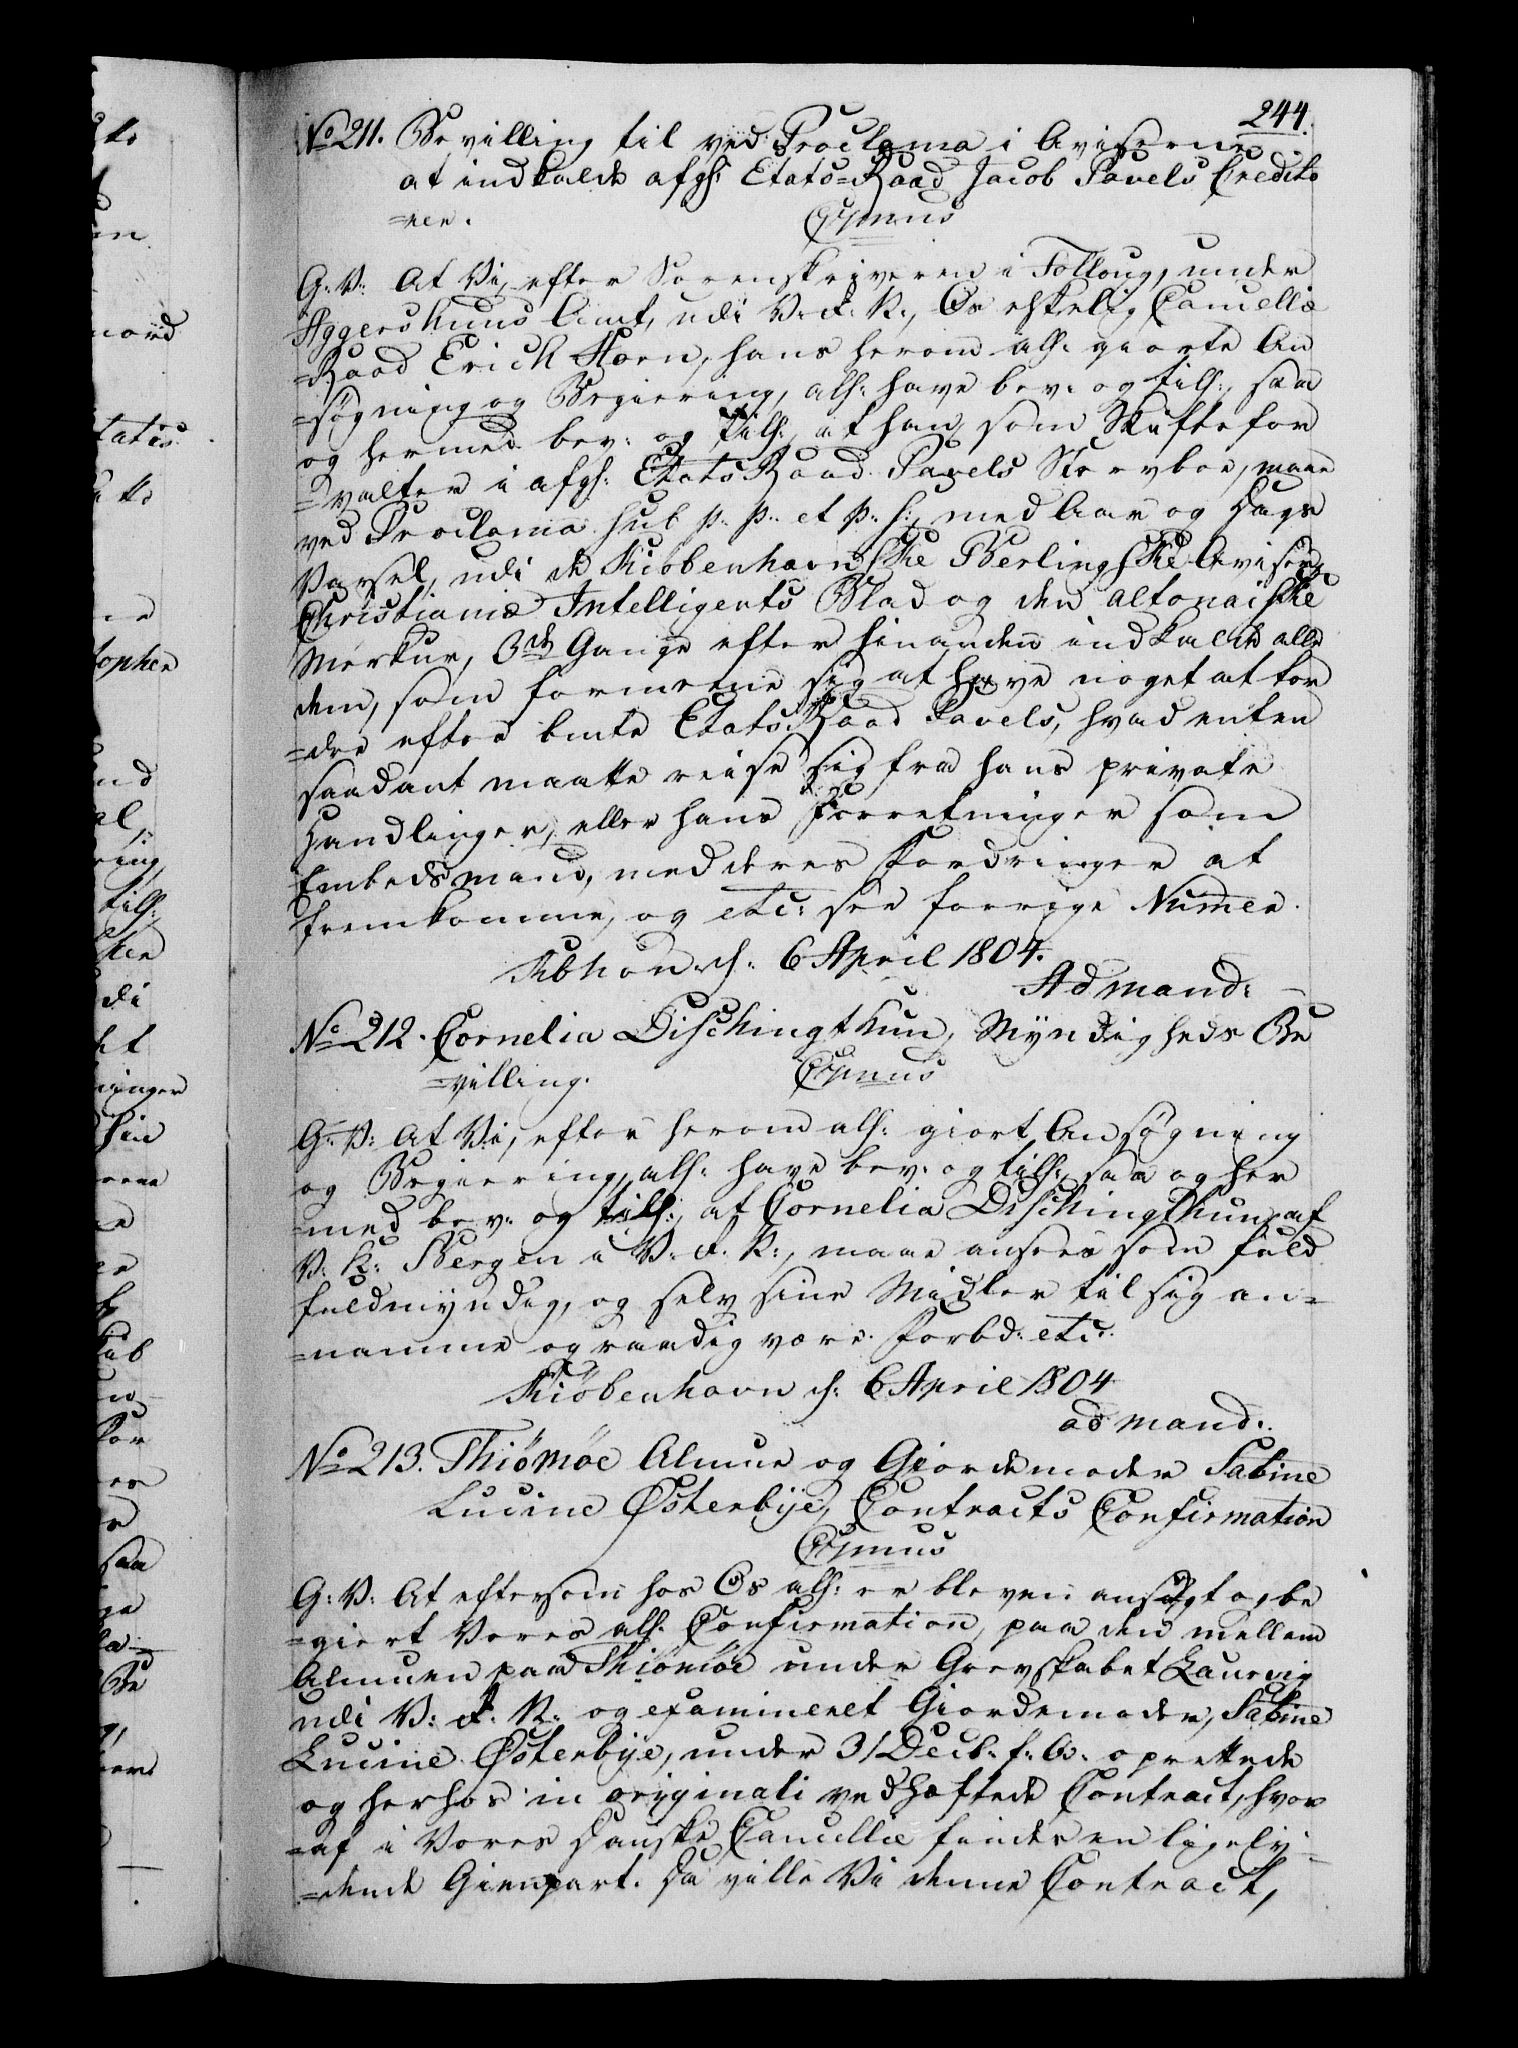 244.
No 211. Bevilling til ved Proclama i Aviserne
at indkalde afgl: Etats-Raad Jacob Pavels Credito
=rer.
C7mus
G: V: At Vi, efter Sorenskriveren i Folloug, under
Aggershuus Amt, udi V. R. N:, Os elskelig Cancellie
=Raad Erick Horn, hans herom all: giorte An
=søgning og Begiering, all: have bev: og till:, saa
og hermed bev: og till:, at han, som Skiftefor
=valter i afgl: Etats Raad Pavels Stervboe, maae
ved Proclama sub p. p. et p. s:, med Aar og Dags
Varsel, udi de Kiöbenhavnske Berlingske Aviser,
Christianiæ Intelligents Blad og den altonaiske
Merkur, 3de Gange efter hinanden indkalde alle
dem, som formeene sig at have noget at for
=dre efter bmte Etats-Raad Pavels, hvad enten
saadant maatte reise sig fra hans private
Handlinger, eller hans Forretninger som
Embedsmand, med deres Fordringer at
fremkomme, og etc: see forrige Numer.
Kbhavn d: 6 April 1804.
Ad mand:
No 212. Cornelia Dischingthun, Myndigheds Be
=villing.
C7mus
G: V: At Vi, efter herom all: giort Ansøgning
og Begiering, all: have bev: og till:, saa og her
=med bev: og till:, at Cornelia Dischingthun, af
V: K: Bergen i V: R. N:, maae ansees som fuld
fuldmyndig, og selv sine Midler til sig an=
=namme og raadig være. Forbd: etc:
Kiöbenhavn d: 6 April 1804
ad mand:.
No 213. Thiömöe Almue og Giordemoder Sabine
Lucine Østerbye, Contracts Confirmation
C7mus
G: V: At eftersom hos Os all: er bleven ansøgt og be
=giert Vores all: Confirmation, paa den mellem
Almuen paa Thiömöe under Grevskabet Laurvig
udi V: R. N: og examineret Giordemoder, Sabine
Lucine Østerbye, under 31 Decb. f: A: oprettede
og herhos in originali vedhæftede Contract, hvor
=af i Vores Danske Cancellie findes en ligely=
=dende Gienpart. Da ville Vi denne Contract,